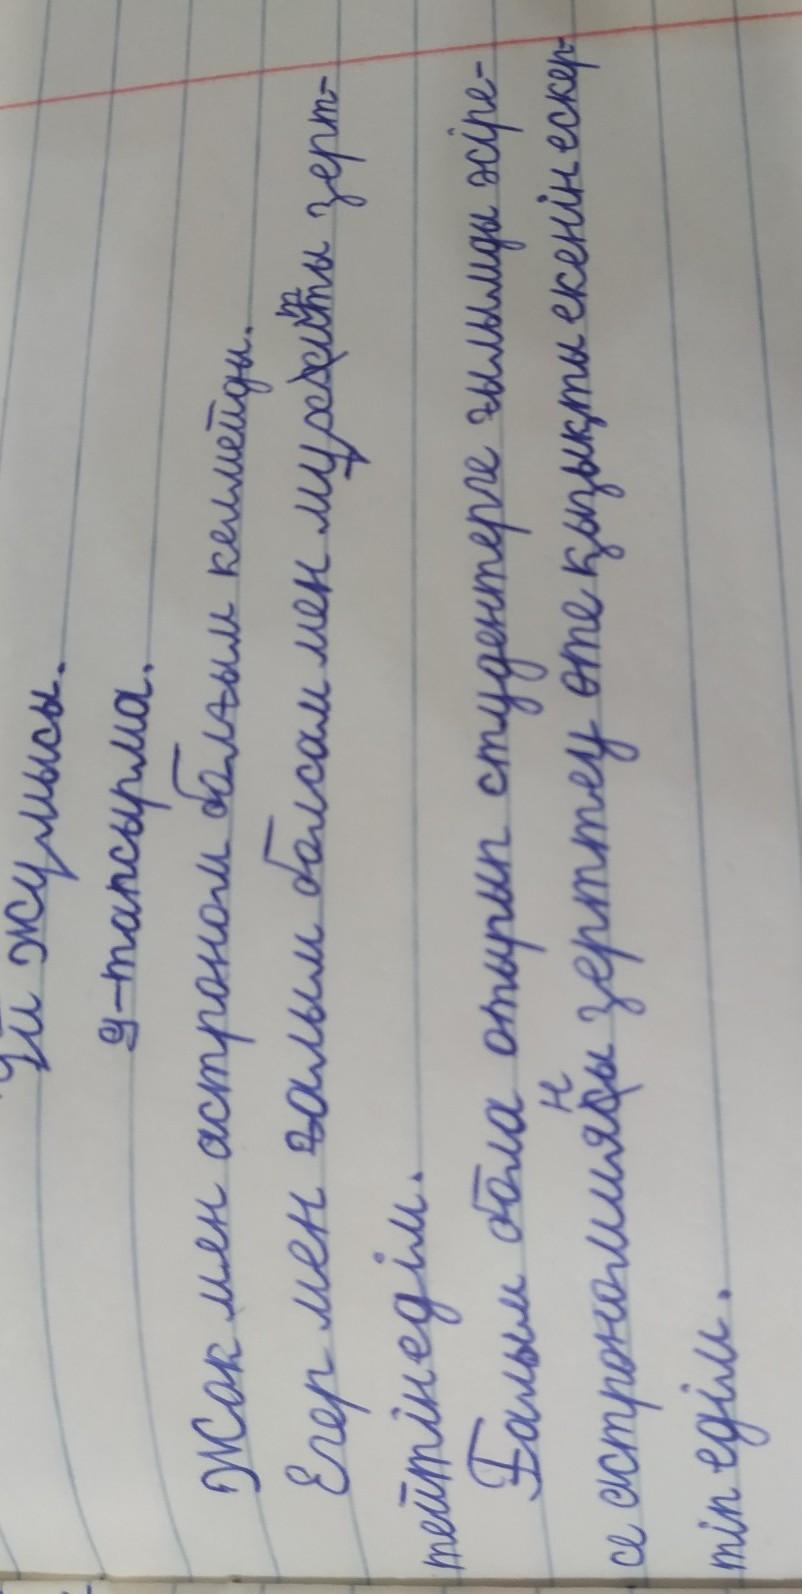 Үй жұмысы.
9-тапсырма.
Жоқ мен астроном болғым келмейды.
Егер мен ғалым болсам мен мұхитты зерт-
тейтін едім.
Ғалым бола отырып студентерге ғылымды әсіре-
се астрономияны зерттеу өте қызықты екенін ескер-
тіп едім.